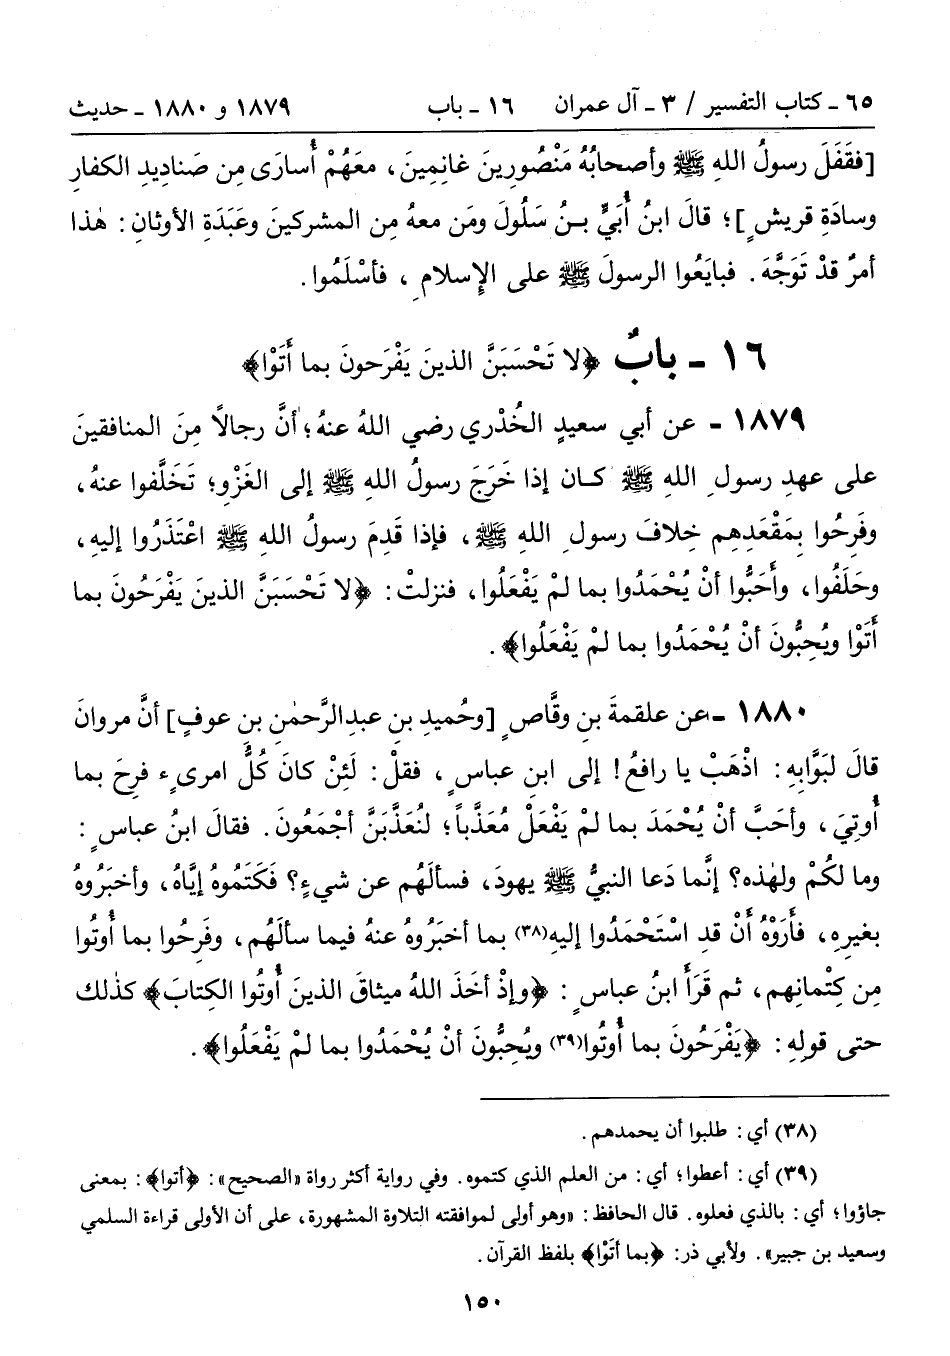 ٦٥ ـ كتاب التفسير / ٣ ـ آل عمران ١٦ ـ باب ١٨٧٩ و ١٨٨٠ ـ حديث
[فقَفَلَ رسولُ اللهِ ﷺ وأصحابُهُ مَنْصُورِينَ غانِمِينَ، معَهُمْ أُسارَى مِن صَناديدِ الكفارِ
وسادَةِ قريشٍ]؛ قالَ ابنُ أُبَيٍّ بـنُ سَلُولَ ومَن معهُ مِن المشركينَ وعَبَدَةِ الأوثانِ: هٰذا
أمرٌ قدْ تَوَجَّهَ. فبايَعُوا الرسولَ ﷺ على الإِسلامِ، فأسْلَمُوا.
١٦ ـ بابٌ ﴿لا تَحْسَبَنَّ الذينَ يَفْرَحونَ بما أَتَوْا﴾
١٨٧٩ ـ عن أبي سعيدٍ الخُدْري رضي اللهُ عنهُ؛ أنَّ رجالاً مِنَ المنافقينَ
على عهدِ رسولِ اللهِ ﷺ كـان إذا خَرَجَ رسولُ اللهِ ﷺ إلى الغَزْوِ؛ تَخَلَّفوا عنهُ،
وفَرِحُوا بمَقْعَدِهِم خِلافَ رسولِ اللهِ ﷺ، فإذا قَدِمَ رسولُ اللهِ ﷺ اعْتَذَرُوا إليهِ،
وحَلَفُوا، وأَحَبُّوا أنْ يُحْمَدُوا بما لمْ يَفْعَلُوا، فنزلتْ: ﴿لا تَحْسَبَنَّ الذينَ يَفْرَحُونَ بما
أَتَوْا ويُحِبُّونَ أنْ يُحْمَدُوا بما لمْ يَفْعَلُوا﴾.
١٨٨٠ ـ عن علقمةَ بن وقَّاصٍ [وحُميدِ بنِ عبدِالرَّحمٰنِ بنِ عوفٍ] أنَّ مروانَ
قالَ لبَوَّابِهِ: اذْهَبْ يا رافعُ! إلى ابنِ عباسٍ، فقلْ: لَئِنْ كانَ كُلُّ امرىءٍ فرِحَ بما
أُوتِيَ، وأحَبَّ أنْ يُحْمَدَ بما لمْ يَفْعَلْ مُعَذَّباً؛ لنُعَذَّبَنَّ أجْمَعُونَ. فقالَ ابنُ عباسٍ:
وما لكُمْ ولهٰذه؟ إنَّما دَعا النبيُّ ﷺ يهودَ، فسألَهُم عن شيءٍ؟ فَكَتَموهُ إيَّاهُ، وأخبَرُوهُ
بغيرِهِ، فأَرَوْهُ أَنْ قدِ اسْتَحْمَدُوا إليهِ(٣٨) بما أخبَرُوهُ عنهُ فيما سألَهُم، وفَرِحُوا بما أُوتُوا
مِن كِتْمانِهِم، ثم قَرَأَ ابنُ عباسٍ: ﴿وإذْ أخَذَ اللهُ ميثاقَ الذينَ أُوتُوا الكِتابَ﴾ كذٰلك
حتى قولِهِ: ﴿يَفْرَحُونَ بما أُوتُوا(٣٩) ويُحِبُّونَ أنْ يُحْمَدُوا بما لمْ يَفْعَلُوا﴾.
(٣٨) أي: طلبوا أن يحمدهم.
(٣٩) أي: أعطوا؛ أي: من العلم الذي كتموه. وفي رواية أكثر رواة «الصحيح»: ﴿أتوا﴾: بمعنى
جاؤوا؛ أي: بالذي فعلوه. قال الحافظ: «وهو أولى لموافقته التلاوة المشهورة، على أن الأولى قراءة السلمي
وسعيد بن جبير». ولأبي ذر: ﴿بما أَتَوْا﴾ بلفظ القرآن.
١٥٠